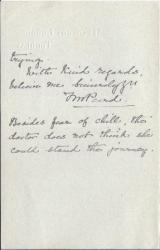 trying.
With kind regards,
believe me
Besides fear of chill, the
doctor does not think she
could stand the journey.